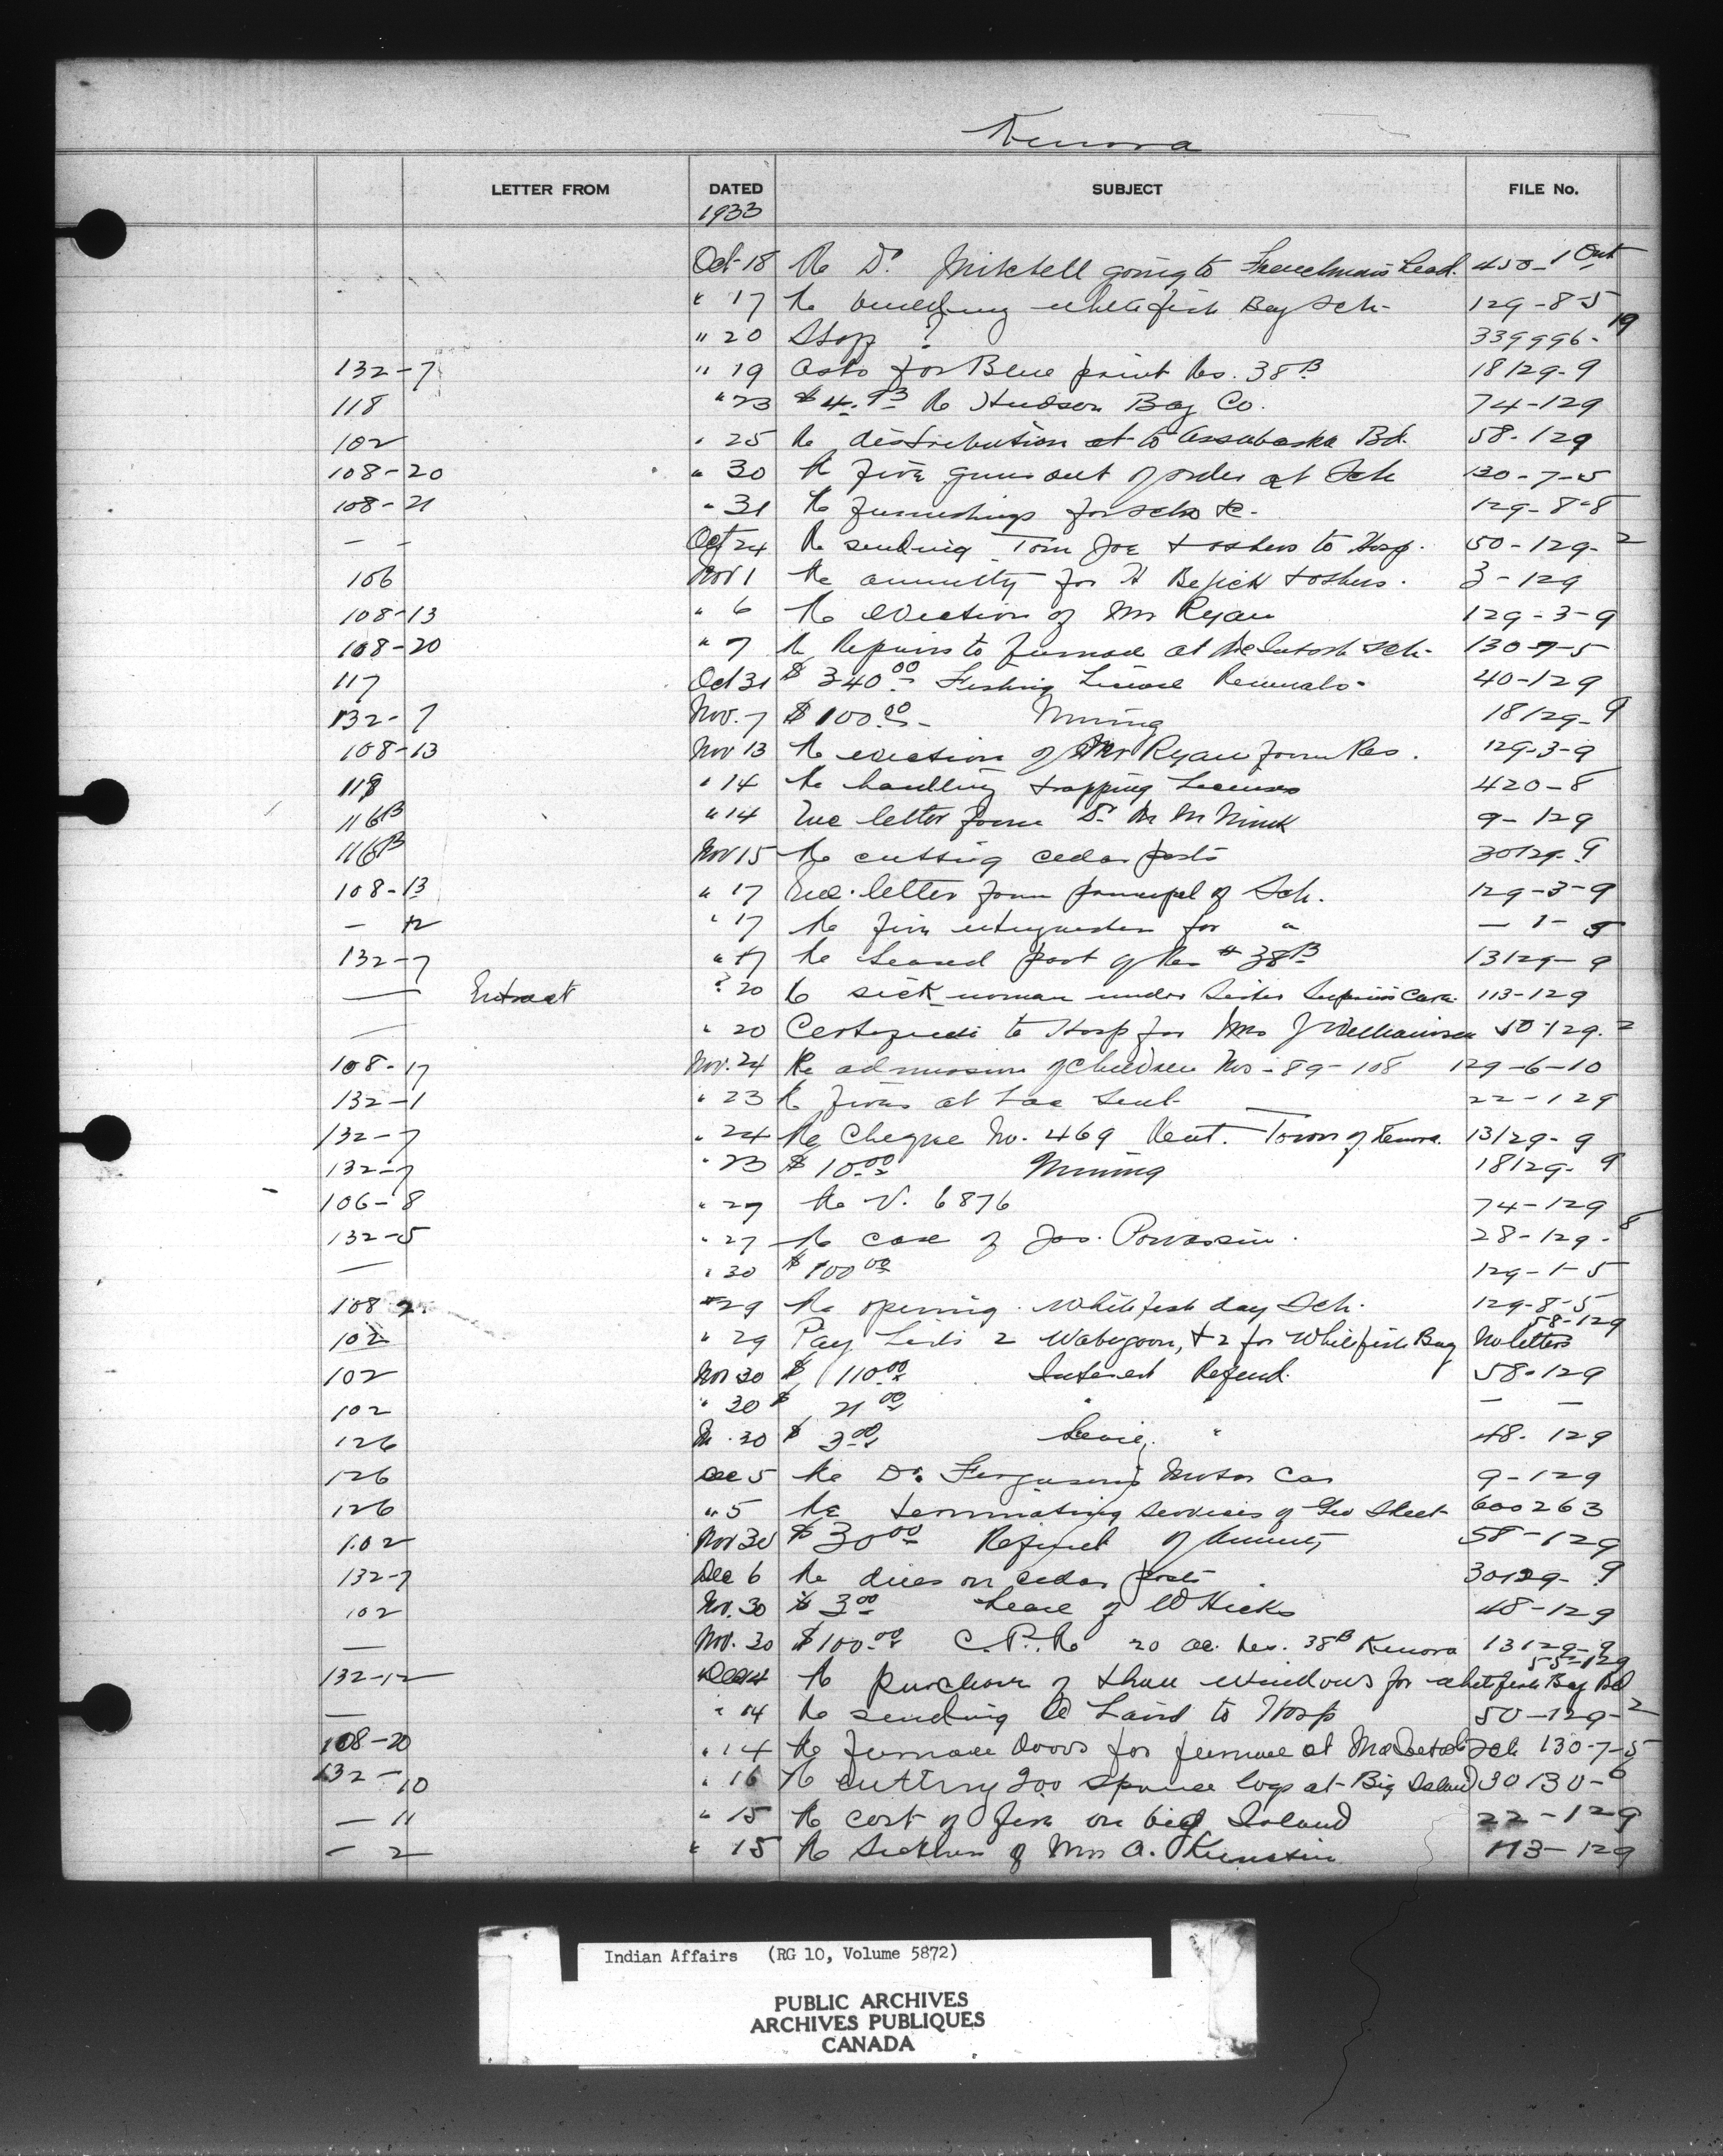 Kenora
LETTER FROM DATED SUBJECT FILE No.
1933
Oct 18 Re Dr. Mitchell going to Frenchman's Head. 450-1 Ont
" 17 Re building whitefish Bay Sch- 129-8-5
" 20 Stop ? 339996-19
132-7 " 19 Asks for Blue print Res. 38B 18129-9
118 " 23 $4.93 Re Hudson Bay Co. 74-129
102 " 25 Re distribution at to Assabaska Bd. 58-129
108-20 " 30 Re fire guns out of order at Sch 130-7-5
108-21 " 31 Re furnishings for sch &c- 129-8-8
— - Oct 24 Re sending Tom Joe & others to Hosp. 50-129-2
106 Nov 1 Re annuity for & others. 3-129
108-13 " 6 Re eviction of Mr Ryan 129-3-9
108-20 " 7 Re Repairs to furnace at McIntosh Sch- 130-7-5
117 Oct 31 $340.00 Fishing License Renewals- 40-129
132-7 Nov. 7 $100.00- Mining 18129-9
108-13 Nov 13 Re eviction of Mr Ryan from Res. 129-3-9
118 " 14 Re handling trapping Licenses 420-8
116B " 14 Enc letter from Dr. 9-129
116B Nov 15 Re cutting cedar posts 30129-9
108-13 " 17 Enc. letter from principal of Sch. 129-3-9
— 12 " 17 Re fire extinguisher for " — 1-
132-7 " 17 Re Leased part of Res # 38B 13129-9
— Extract ? 20 Re sick woman under Sister Superiors Care. 113-129
— " 20 Certificate to Hosp for Mrs J Williamson 50-129-2
108-17 Nov. 24 Re admission of Children Nos-89-108 129-6-10
132-1 " 23 Re fires at Lac Seul 22-129
132-7 " 24 Re Cheque No. 469 Rent. Town of Kenora. 13129-9
132-7 " 23 $10.00 Mining 18129-9
106-8 " 27 Re V. 6876 74-129
132-5 " 27 Re case of Jas. Powassin. 28-129-8
— " 30 $100.00 129-1-5
108 2 " 29 Re opening Whitefish day Sch. 129-8-5
102 " 29 Pay Lists 2 Wabigoon, & 2 for Whitefish Bay 58-129 No letters
102 Nov 30 $110.00 Interest Refund. 58-129
102 " 30 $21.00 " " — —
126 " 30 $3.00 Lease, " 48-129
126 Dec 5 Re Dr. Ferguson's Motor Car 9-129
126 " 5 Re terminating services of Geo Skeet 600263
102 Nov 30 $30.00 Refund of Annuity 58-129
132-7 Dec 6 Re dues on cedar posts. 30129-9
102 Nov. 30 $3.00 Lease of W Hicks 48-129
— Nov. 30 $100.00 C.P.R 20 ac. Res. 38B Kenora 13129-9
132-12 Dec 14 Re purchase of storm windows for whitefish Bay Bd 55-129
— " 14 Re sending Laird to Hosp 50-129-2
108-20 " 14 Re furnace doors for furnace at McIntosh Sch 130-7-5
132-10 " 16 Re cutting 200 spruce logs at Big Island 30130-6
— 11 " 15 Re cost of fire on big Island 22-129
— 2 " 15 Re Sickness of Mrs A. 113-129
Indian Affairs (RG 10, Volume 5872)
PUBLIC ARCHIVES
ARCHIVES PUBLIQUES
CANADA